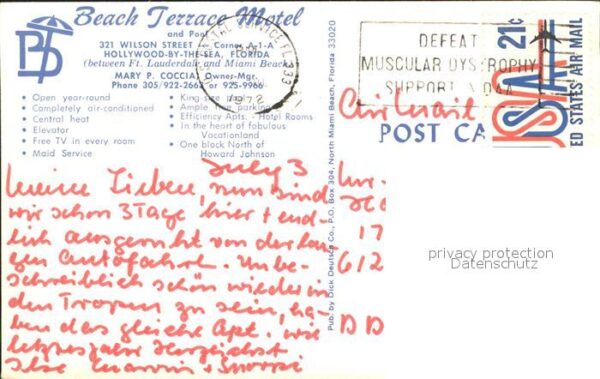 BTD
Beach Terrace Motel
and Pool
321 WILSON STREET — Corner A-1-A
HOLLYWOOD-BY-THE-SEA, FLORIDA
(between Ft. Lauderdale and Miami Beach)
MARY P. COCCIA, Owner-Mgr.
Phone 305/922-266 or 925-9966
• Open year-round
• Completely air-conditioned
• Central heat
• Elevator
• Free TV in every room
• Maid Service
• King-size
• Ample free parking
• Efficiency Apts. - Hotel Rooms
• In the heart of fabulous
Vacationland
• One block North of
Howard Johnson
POSTAL SERVICE FL 333
PM
1972
DEFEAT
MUSCULAR DYSTROPHY
SUPPORT MDAA
21¢
USA
ED STATES AIR MAIL
Air Mail
POST CA
Pub. by Dick Deutsch Co., P.O. Box 304, North Miami Beach, Florida 33020
July 3
Meine Lieben, nun sind
wir schon 3 Tage hier + end-
lich ausgeruht von der lan-
gen Autofahrt. Unbe-
schreiblich schön wieder in
den Tropen zu sein, ha-
ben das gleiche Apt. wie
letztes Jahr Herzlichst
Ilse
17
612
DD
privacy protection
Datenschutz